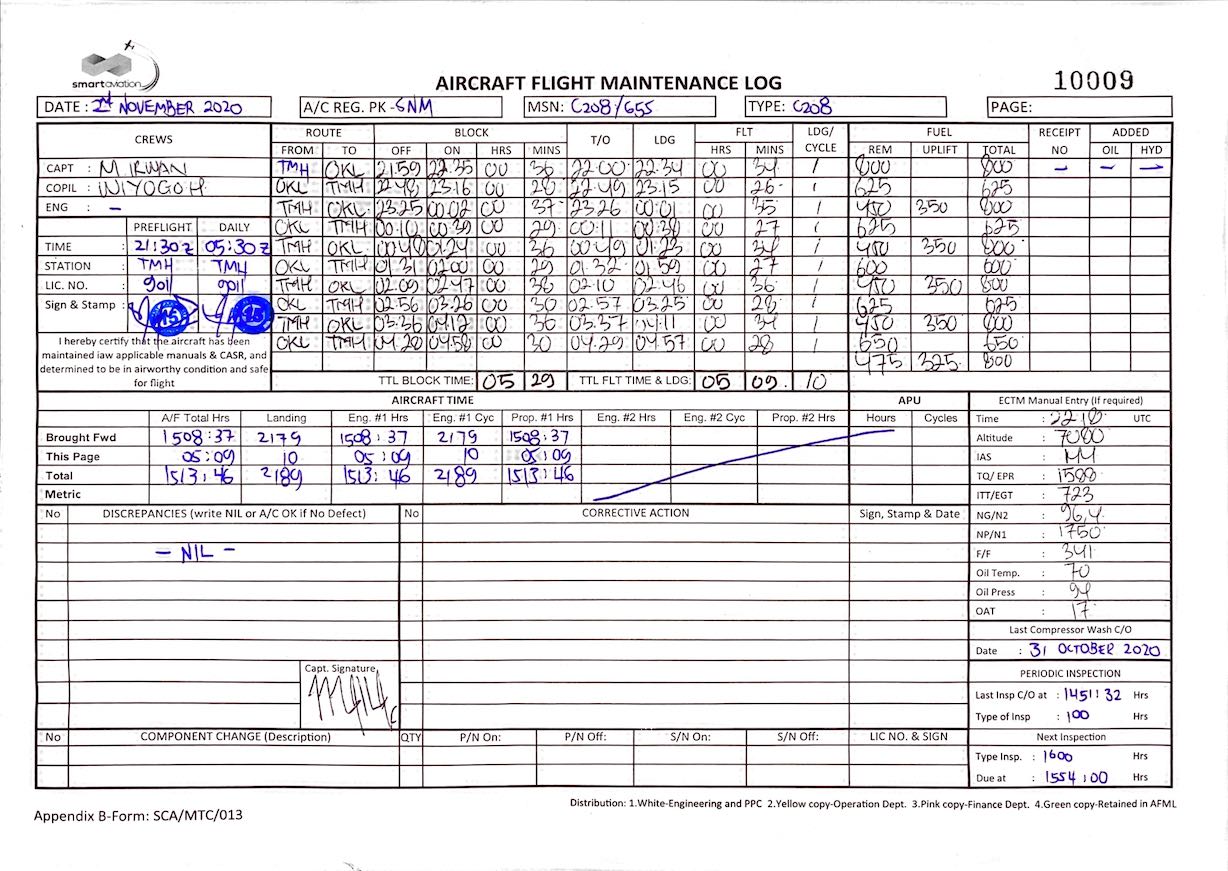 smartaviation
AIRCRAFT FLIGHT MAINTENANCE LOG
10009
DATE : 2nd NOVEMBER 2020 A/C REG. PK -SNM MSN: C208/655 TYPE: C208 PAGE:
CREWS ROUTE BLOCK T/O LDG FLT LDG/ CYCLE FUEL RECEIPT NO ADDED
FROM TO OFF ON HRS MINS HRS MINS REM UPLIFT TOTAL OIL HYD
CAPT : M IRWAN TMH OKL 21.59 22.35 00 36 22.00 22.34 00 34 1 800 800 – – –
COPIL : WIYOGO H. OKL TMH 22.48 23.16 00 28 22.49 23.15 00 26 1 625 625
ENG : – TMH OKL 23.25 00.02 00 37 23.26 00.01 00 35 1 450 350 800
PREFLIGHT DAILY OKL TMH 00.10 00.39 00 29 00.11 00.38 00 27 1 625 625
TIME : 21:30z 05:30z TMH OKL 00.48 01.24 00 36 00.49 01.23 00 34 1 450 350 800
STATION : TMH TMH OKL TMH 01.31 02.00 00 29 01.32 01.59 00 27 1 600 600
LIC. NO. : 9011 9011 TMH OKL 02.09 02.47 00 38 02.10 02.46 00 36 1 450 350 800
Sign & Stamp : 15 15 OKL TMH 02.56 03.26 00 30 02.57 03.25 00 28 1 625 625
TMH OKL 03.36 04.12 00 36 03.37 04.11 00 34 1 450 350 800
OKL TMH 04.28 04.58 00 30 04.29 04.57 00 28 1 650 650
475 325 800
I hereby certify that the aircraft has been
maintained iaw applicable manuals & CASR, and
determined to be in airworthy condition and safe
for flight
TTL BLOCK TIME: 05 29 TTL FLT TIME & LDG: 05 09 10
AIRCRAFT TIME APU ECTM Manual Entry (If required)
A/F Total Hrs Landing Eng. #1 Hrs Eng. #1 Cyc Prop. #1 Hrs Eng. #2 Hrs Eng. #2 Cyc Prop. #2 Hrs Hours Cycles Time : 2218 UTC
Brought Fwd 1508:37 2179 1508:37 2179 1508:37 Altitude : 7000
This Page 05:09 10 05:09 10 05:09 IAS :
Total 1513:46 2189 1513:46 2189 1513:46 TQ/ EPR : 1500
Metric ITT/EGT : 723
No DISCREPANCIES (write NIL or A/C OK if No Defect) No CORRECTIVE ACTION Sign, Stamp & Date NG/N2 : 96,4
NP/N1 : 1750
– NIL – F/F : 341
Oil Temp. : 70
Oil Press : 94
OAT : 17
Last Compressor Wash C/O
Date : 31 OCTOBER 2020
Capt. Signature
PERIODIC INSPECTION
Last Insp C/O at : 1451:32 Hrs
Type of Insp : 100 Hrs
No COMPONENT CHANGE (Description) QTY P/N On: P/N Off: S/N On: S/N Off: LIC NO. & SIGN Next Inspection
Type Insp. : 1600 Hrs
Due at : 1554:00 Hrs
Distribution: 1.White-Engineering and PPC 2.Yellow copy-Operation Dept. 3.Pink copy-Finance Dept. 4.Green copy-Retained in AFML
Appendix B-Form: SCA/MTC/013